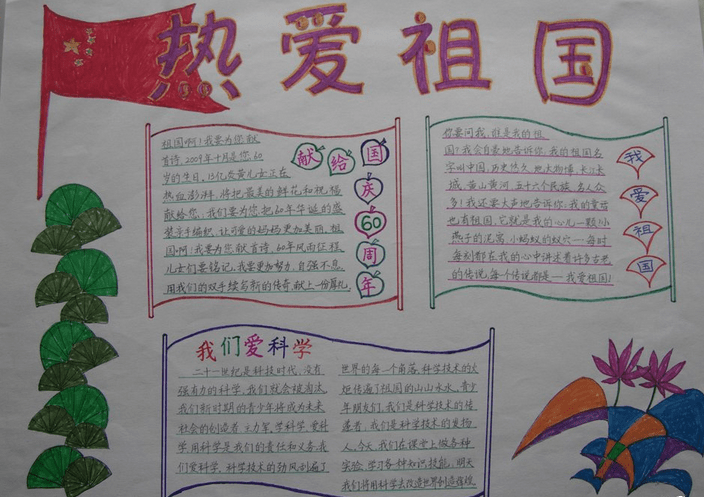 热爱祖国
祖国啊!我要为您献
首诗,2009年十月是您60
岁的生日,13亿炎黄儿女正在
热血澎湃,将把最美的鲜花和祝福
献给您;我们要为您把60年华诞的盛
装亲手编织,让可爱的妈妈更加美丽,祖
国啊!我要为您献首诗,60年风雨征程
儿女们要铭记,我要更加努力,自强不息,
用我们的双手续写新的传奇,献上一份厚礼,
献给国庆60周年
你要问我,谁是我的祖
国?我会自豪地告诉你,我的祖国名
字叫中国,历史悠久,地大物博,长江长
城,黄山黄河,五十六个民族,名人众
多!我还要大声地告诉你:我的
也有祖国,它就是我的心儿一颗!小
燕子的泥窝,小蚂蚁的蚁穴……每时
每刻都在我的心中讲述着许多古老
的传说,每个传说都是——我爱祖国!
我爱祖国
我们爱科学
二十一世纪是科技时代,没有
强有力的科学,我们就会被淘汰
我们新时期的青少年将成为未来
社会的创造者,主力军,学科学,爱科
学,用科学是我们的责任和义务,我
们爱科学,科学技术的劲风刮遍了
世界的每一个角落,科学技术的火
炬传遍了祖国的山山水水,青少
年朋友们,我们是科学技术的传
播者,我们是科学技术的发扬
人,今天,我们在课堂上做各种
实验,学习各种知识技能,明天
我们将用科学去改造世界创造辉煌